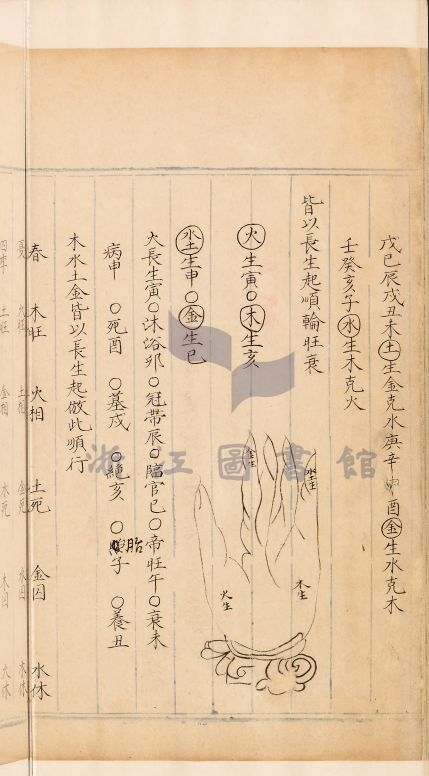 戊己辰戌丑未土生金克水庚辛申酉金生水克木
壬癸亥子水生木克火
皆以長生起順輪旺衰
火生寅○木生亥
水土生申○金生巳
火長生寅○沐浴卯○冠帶辰○臨官巳○帝旺午○衰未
病申○死酉○墓戌○絕亥○胎子○養丑
木水土金皆以長生起倣此順行
春 木旺 火相 土死 金囚 水休
金生
水土生
木生
火生
浙江圖書館